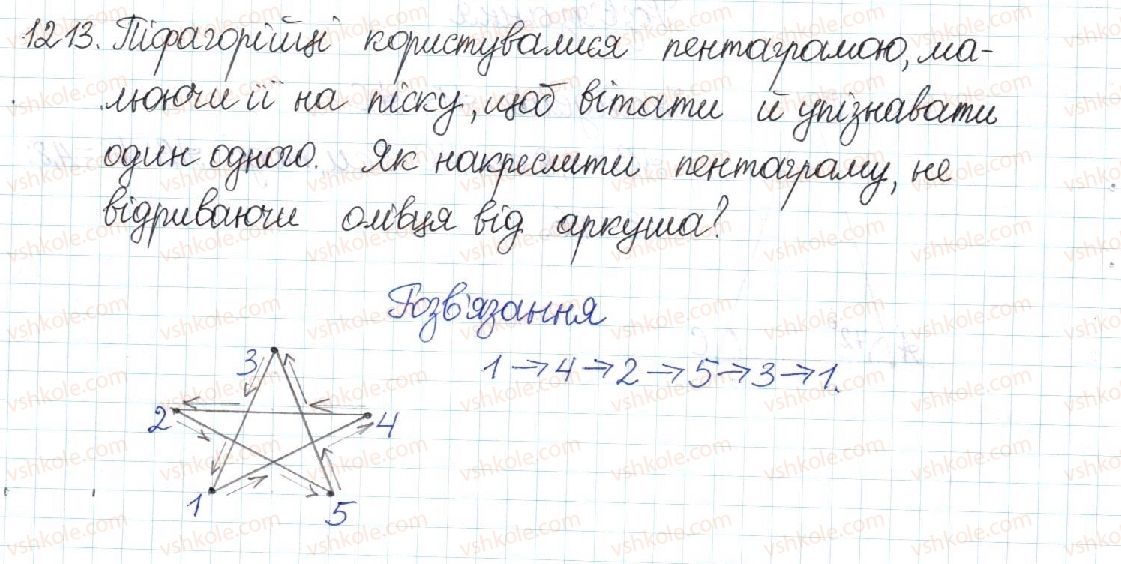 1213. Піфагорійці користувалися пентаграмою, ма-
люючи її на піску, щоб вітати й упізнавати
один одного. Як накреслити пентаграму, не
відриваючи олівця від аркуша?
Розв'язання
1→4→2→5→3→1.
3
2
4
1
5